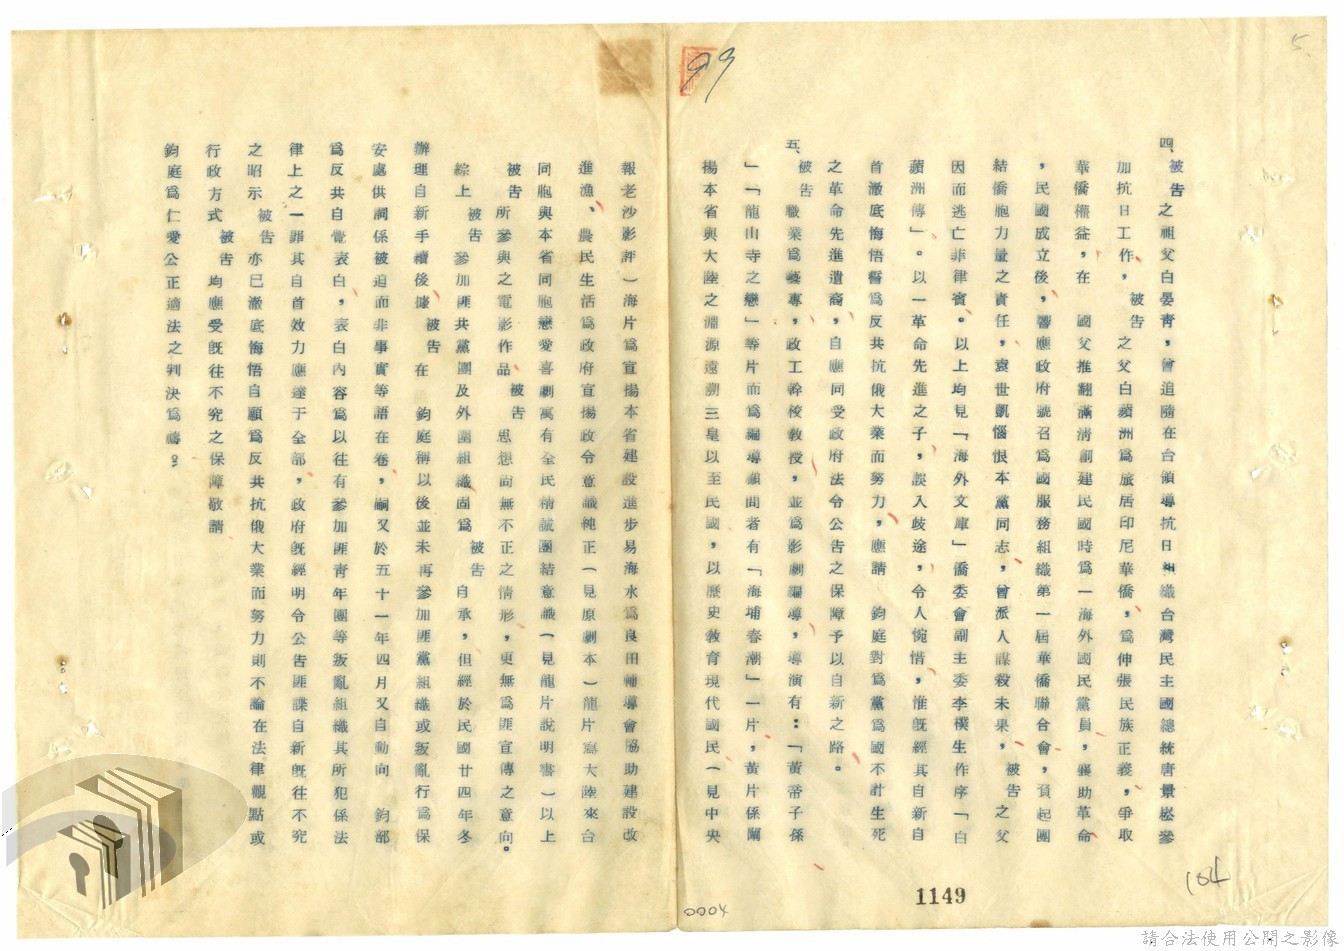 5
99
四、被告之祖父白晏青，曾追隨在台領導抗日組織台灣民主國總統唐景崧參
加抗日工作，被告之父白蘋洲為旅居印尼華僑，為伸張民族正義，爭取
華僑權益，在　國父推翻滿清創建民國時為一海外國民黨員，襄助革命
，民國成立後，響應政府號召為國服務組織第一屆華僑聯合會，負起團
結僑胞力量之責任，袁世凱惱恨本黨同志，曾派人謀殺未果，被告之父
因而逃亡菲律賓。以上均見「海外文庫」僑委會副主委李樸生作序「白
蘋洲傳」。以一革命先進之子，誤入歧途，令人惋惜，惟既經其自新自
首澈底悔悟誓為反共抗俄大業而努力，應請　鈞庭對為黨為國不計生死
之革命先進遺裔，自應同受政府法令公告之保障予以自新之路。
五、被告職業為藝專，政工幹校教授，並為影劇編導，導演有：「黃帝子孫
」「龍山寺之戀」等片而為編導顧問者有「海埔春潮」一片，黃片係闡
揚本省與大陸之淵源遠溯三皇以至民國，以歷史教育現代國民（見中央
報老沙影評）海片為宣揚本省建設進步易海水為良田輔導會協助建設改
進漁、農民生活為政府宣揚政令意識純正（見原劇本）龍片寫大陸來台
同胞與本省同胞戀愛喜劇寓有全民精誠團結意識（見龍片說明書）以上
被告所參與之電影作品，被告思想向無不正之情形，更無為匪宣傳之意向。
綜上被告參加匪共黨團及外圍組織固為被告自承，但經於民國廿四年冬
辦理自新手續後，據被告在　鈞庭稱以後並未再參加匪黨組織或叛亂行為保
安處供詞係被迫而非事實等語在卷，嗣又於五十一年四月又自動向　鈞部
為反共自覺表白，表白內容為以往有參加匪青年團等叛亂組織其所犯係法
律上之一罪其自首效力應遂于全部，政府既經明令公告匪諜自新既往不究
之昭示被告亦已澈底悔悟自願為反共抗俄大業而努力則不論在法律觀點或
行政方式被告均應受既往不究之保障敬請
鈞庭為仁愛公正適法之判決為禱。
1149
0004
104
請合法使用公開之影像